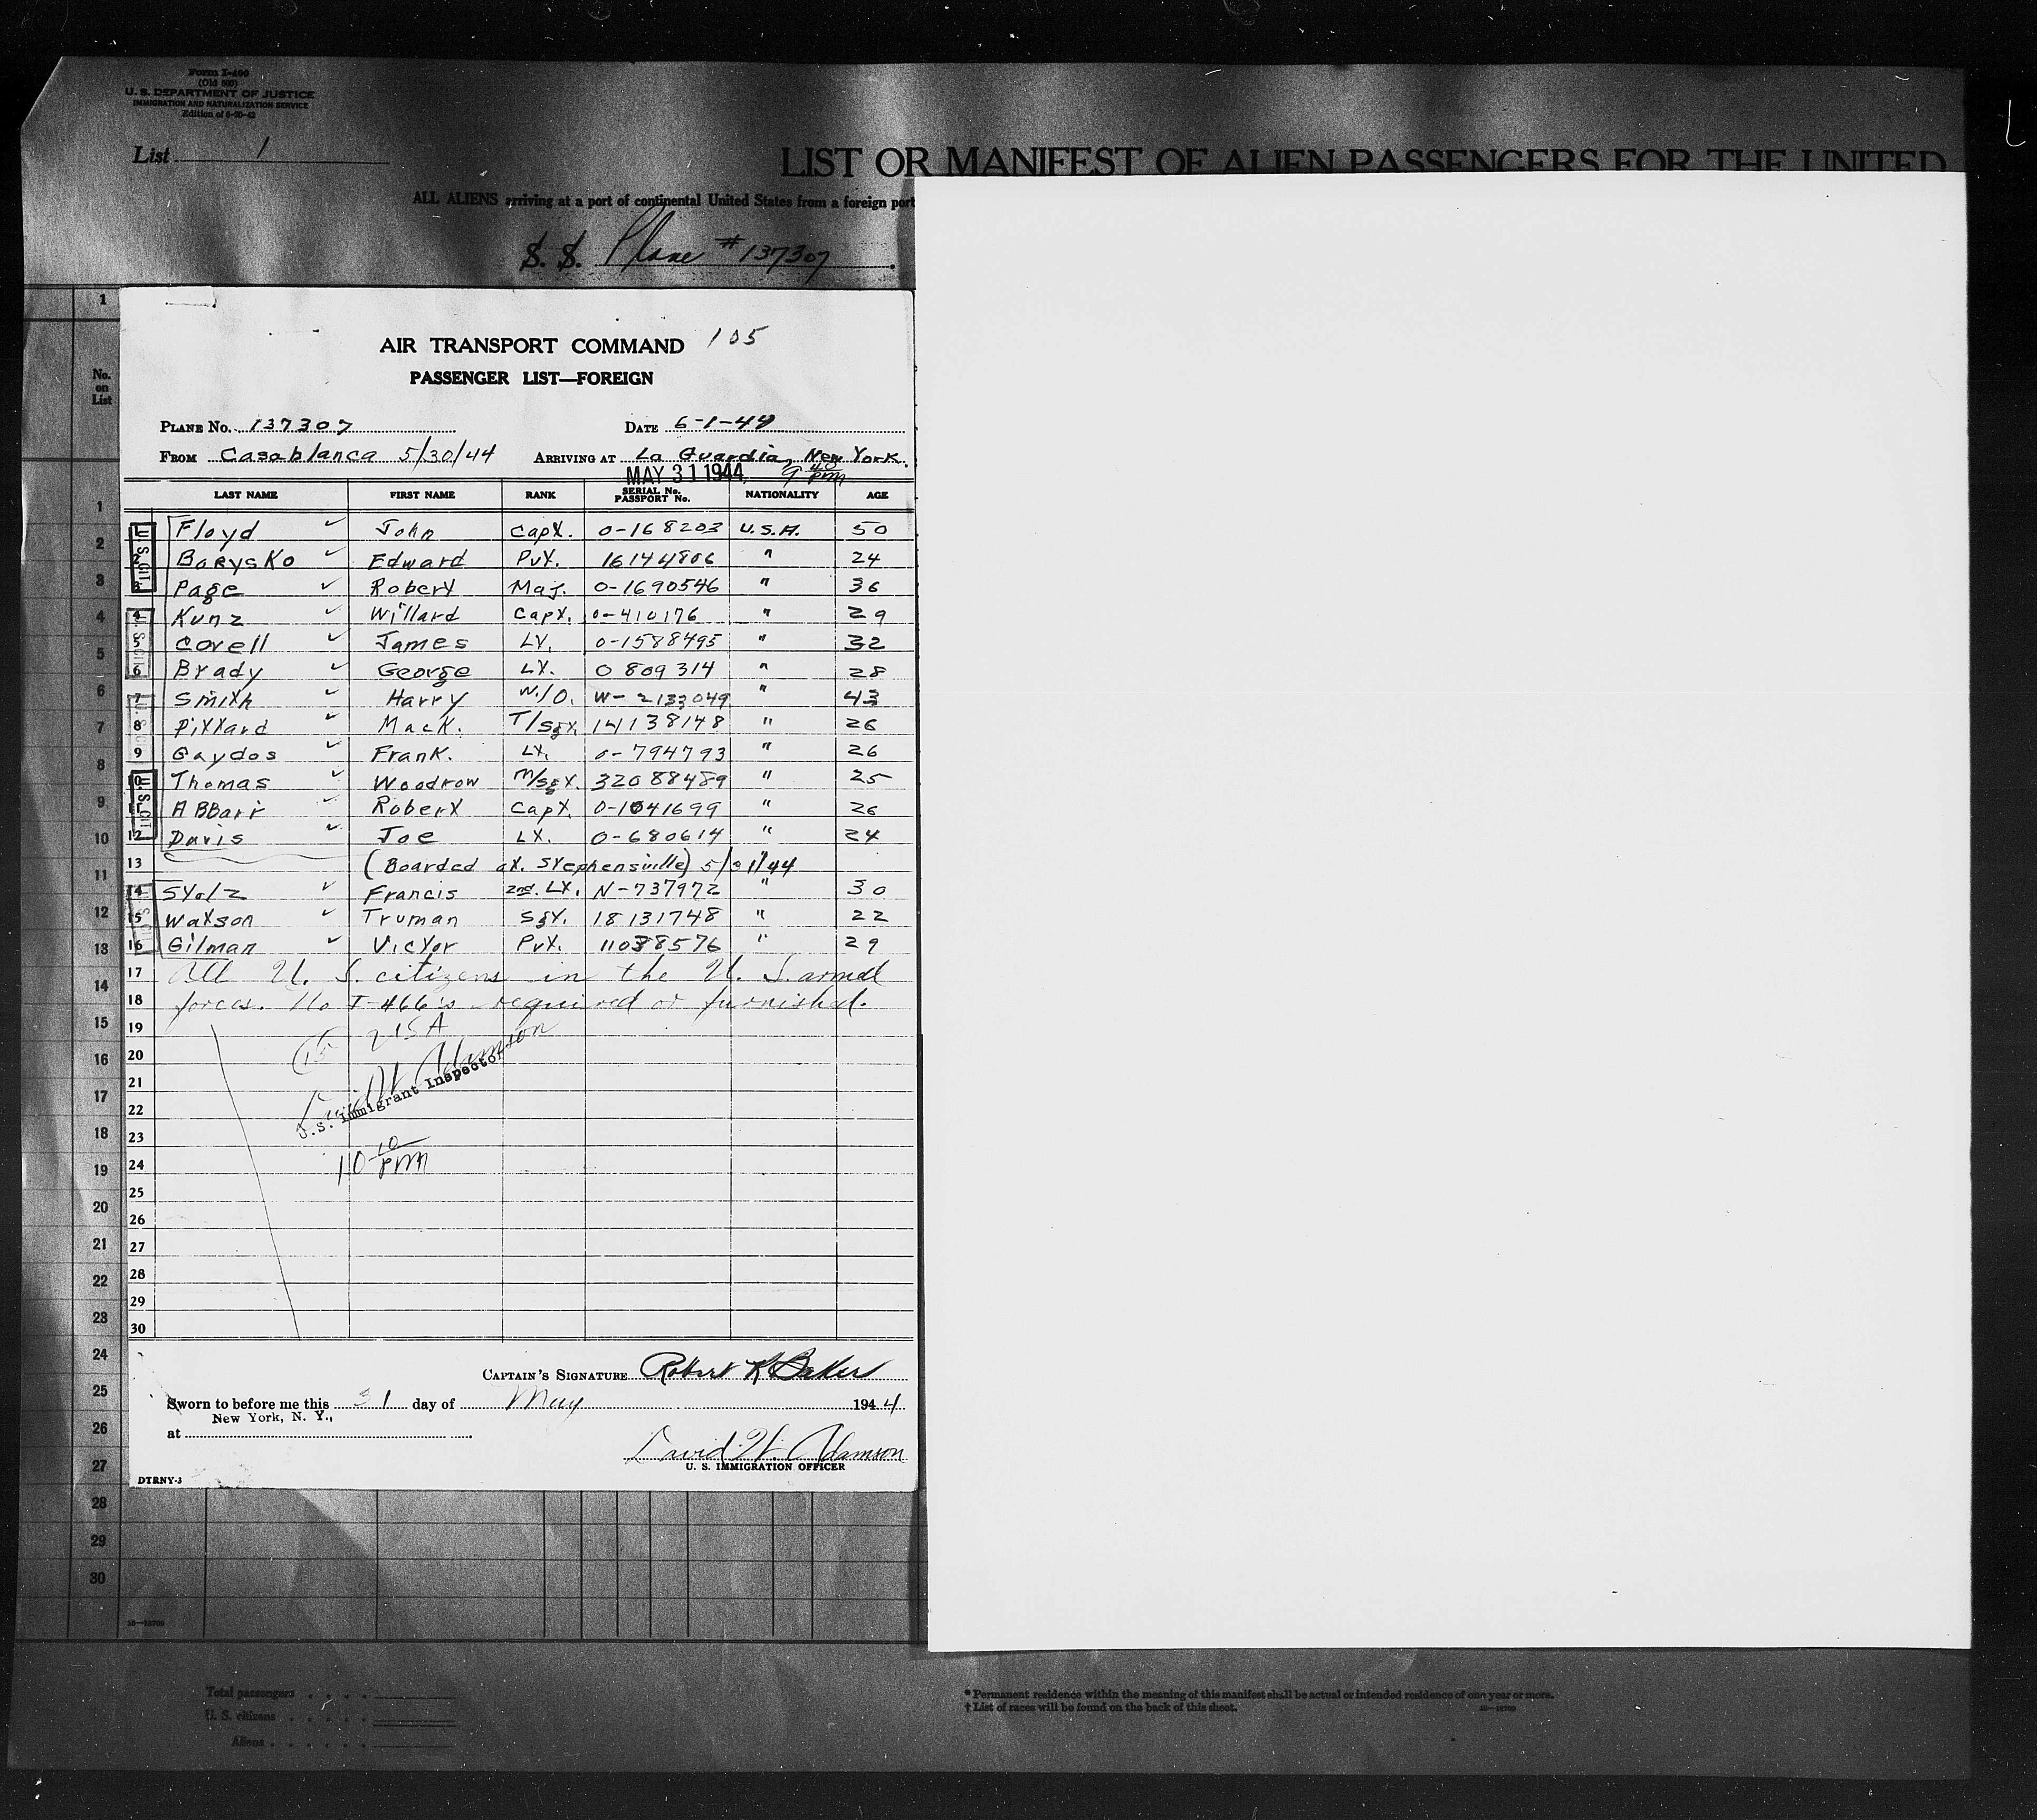 Form I-466
(Old 500)
U. S. DEPARTMENT OF JUSTICE
IMMIGRATION AND NATURALIZATION SERVICE
Edition of 6-20-42
List 1
LIST OR MANIFEST OF ALIEN PASSENGERS FOR THE UNITED
ALL ALIENS arriving at a port of continental United States from a foreign port
S. S. Plane # 137307
No. on List
AIR TRANSPORT COMMAND 105
PASSENGER LIST—FOREIGN
PLANE No. 137307 DATE 6-1-44
FROM Casablanca 5/30/44 ARRIVING AT La Guardia, New York.
MAY 31 1944 9 40 pm
LAST NAME FIRST NAME RANK SERIAL No. PASSPORT No. NATIONALITY AGE
1 Floyd ✓ John Capt. 0-168203 U.S.A. 50
2 Borysko ✓ Edward Pvt. 16144806 " 24
3 Page ✓ Robert Maj. 0-1690546 " 36
4 Kunz ✓ Willard Capt. 0-410176 " 29
5 Covell ✓ James Lt. 0-1588495 " 32
6 Brady ✓ George Lt. 0 809314 " 28
7 Smith ✓ Harry W/O. W-2133049 " 43
8 Pittard ✓ Mack. T/Sgt. 14138148 " 26
9 Gaydos ✓ Frank. Lt. 0-794793 " 26
10 Thomas ✓ Woodrow M/Sgt. 32088489 " 25
11 ABBarr ✓ Robert Capt. 0-1041699 " 26
12 Davis ✓ Joe Lt. 0-680614 " 24
13 (Boarded at. Stephensville) 5/31/44
14 Stolz ✓ Francis 2nd. Lt. N-737972 " 30
15 Watson ✓ Truman Sgt. 18131748 " 22
16 Gilman ✓ Victor Pvt. 11038576 " 29
17 All U. S. citizens in the U. S. armed
18 forces. No I-466's required or furnished.
19 (15) USA
20 David W. Adamson
21 U.S. Immigrant Inspector
22
23
24 10 10 pm
25
26
27
28
29
30
U. S. CIT.
CAPTAIN'S SIGNATURE Robert K Baker
Sworn to before me this 31 day of May 1944
New York, N. Y.,
at
David W. Adamson
U. S. IMMIGRATION OFFICER
DTRNY-3
1
1
2
3
4
5
6
7
8
9
10
11
12
13
14
15
16
17
18
19
20
21
22
23
24
25
26
27
28
29
30
Total passengers
U. S. citizens
Aliens
* Permanent residence within the meaning of this manifest shall be actual or intended residence of one year or more.
† List of races will be found on the back of this sheet.